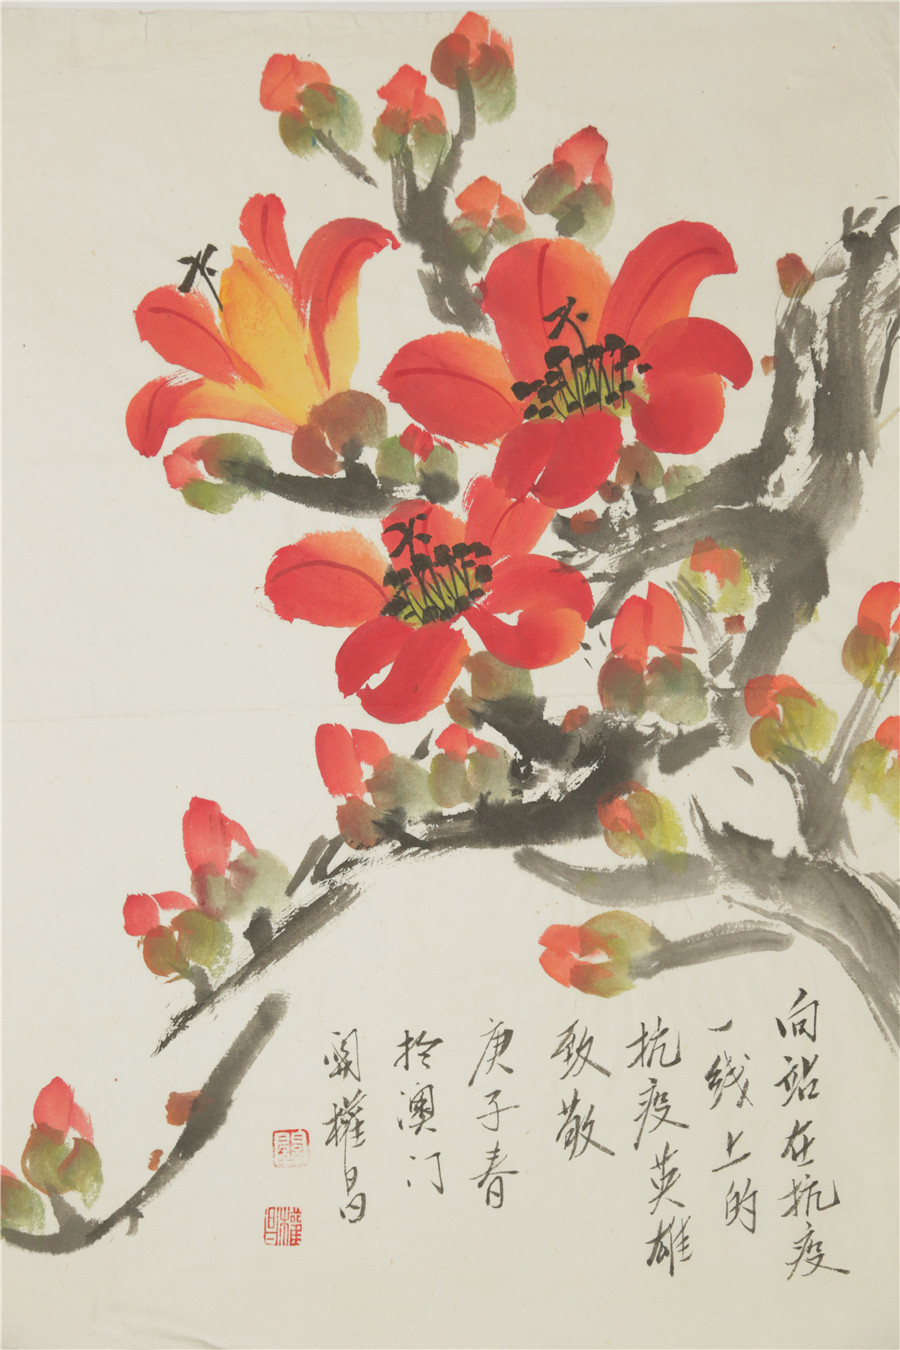 向站在抗疫
一线上的
抗疫英雄
致敬
庚子春
扵澳门
関權昌
關
權昌